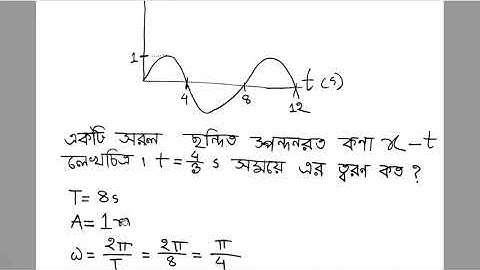 1
t (s)
4
8
12
একটি সরল ছন্দিত স্পন্দনরত কণা x-t
লেখচিত্র। t = 4/3 s সময়ে এর ত্বরণ কত?
T = 8s
A = 1m
ω = 2π/T = 2π/8 = π/4